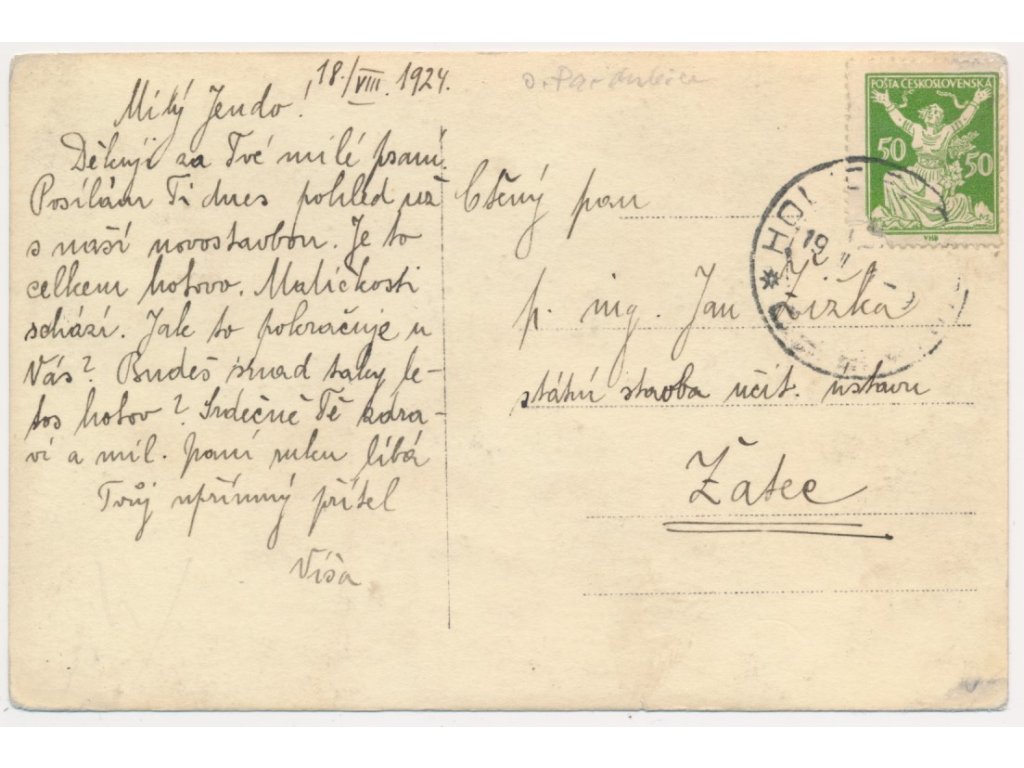 18./VIII. 1924.
Milý Jendo!
Děkuji za Tvé milé psaní.
Posílám Ti dnes pohled už
s naší novostavbou. Je to
celkem hotovo. Maličkosti
schází. Jak to pokračuje u
Vás? Budeš snad taky le-
tos hotov? Srdečně Tě zdra-
ví a mil. paní ruku líbá
Tvůj upřímný přítel
Víša
o. Pardubice
POŠTA ČESKOSLOVENSKÁ
50 50
VHB
HOL
19
Ctěný pan
p. ing. Jan Žižka
státní stavba učit. ustavu
Žatec